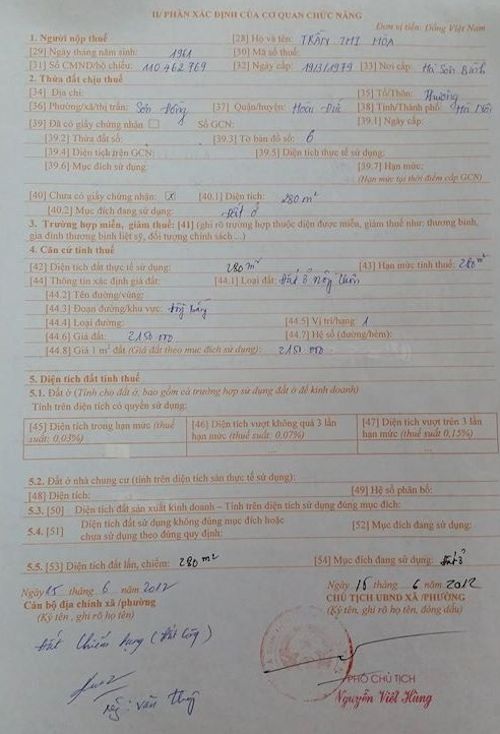 II/ PHẦN XÁC ĐỊNH CỦA CƠ QUAN CHỨC NĂNG
Đơn vị tiền: Đồng Việt Nam
1. Người nộp thuế [28] Họ và tên: TRẦN THỊ HÒA
[29] Ngày tháng năm sinh: 1961 [30] Mã số thuế:
[31] Số CMND/hộ chiếu: 110462769 [32] Ngày cấp: 19/3/1979 [33] Nơi cấp: Hà Sơn Bình
2. Thửa đất chịu thuế
[34] Địa chỉ: [35] Tổ/Thôn: Thượng
[36] Phường/xã/thị trấn: Sơn Đồng [37] Quận/huyện: Hoài Đức [38] Tỉnh/Thành phố: Hà Nội
[39] Đã có giấy chứng nhận: Số GCN: [39.1] Ngày cấp:
[39.2] Thửa đất số: [39.3] Tờ bản đồ số: 6
[39.4] Diện tích trên GCN: [39.5] Diện tích thực tế sử dụng:
[39.6] Mục đích sử dụng: [39.7] Hạn mức:
(Hạn mức tại thời điểm cấp GCN)
[40] Chưa có giấy chứng nhận: x [40.1] Diện tích: 280 m²
[40.2] Mục đích đang sử dụng: Đất ở
3. Trường hợp miễn, giảm thuế: [41] (ghi rõ trường hợp thuộc diện được miễn, giảm thuế như: thương binh,
gia đình thương binh liệt sỹ, đối tượng chính sách ...)
4. Căn cứ tính thuế
[42] Diện tích đất thực tế sử dụng: 280 m² [43] Hạn mức tính thuế: 280 m²
[44] Thông tin xác định giá đất: [44.1] Loại đất: Đất ở nông thôn
[44.2] Tên đường/vùng:
[44.3] Đoạn đường/khu vực: Đồng bằng
[44.4] Loại đường: [44.5] Vị trí/hạng: 1
[44.6] Giá đất: 2150 000 [44.7] Hệ số (đường/hẻm):
[44.8] Giá 1 m² đất (Giá đất theo mục đích sử dụng): 2150 000
5. Diện tích đất tính thuế
5.1. Đất ở (Tính cho đất ở, bao gồm cả trường hợp sử dụng đất ở để kinh doanh)
Tính trên diện tích có quyền sử dụng:
[45] Diện tích trong hạn mức (thuế suất: 0,03%) [46] Diện tích vượt không quá 3 lần hạn mức (thuế suất: 0,07%) [47] Diện tích vượt trên 3 lần hạn mức (thuế suất 0,15%)
5.2. Đất ở nhà chung cư (tính trên diện tích sàn thực tế sử dụng):
[48] Diện tích: [49] Hệ số phân bổ:
5.3. [50] Diện tích đất sản xuất kinh doanh – Tính trên diện tích sử dụng đúng mục đích:
5.4. [51] Diện tích đất sử dụng không đúng mục đích hoặc
chưa sử dụng theo đúng quy định: [52] Mục đích đang sử dụng:
5.5. [53] Diện tích đất lấn, chiếm: 280 m² [54] Mục đích đang sử dụng: Đất ở
Ngày 15 tháng 6 năm 2012
Cán bộ địa chính xã /phường
(Ký tên , ghi rõ họ tên)
Đất Chiếm dụng (Đất Công)
Ngày 15 tháng 6 năm 2012
CHỦ TỊCH UBND XÃ /PHƯỜNG
(Ký tên, ghi rõ họ tên, đóng dấu)
PHÓ CHỦ TỊCH
Nguyễn Viết Hùng